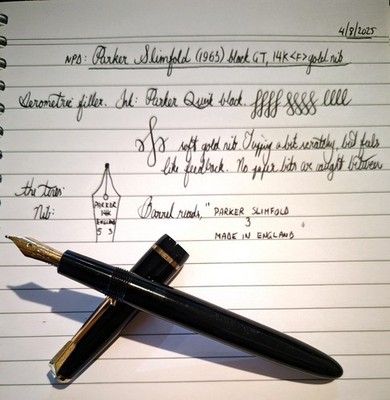 4/8/2025
NPD: Parker Slimfold (1965) black GT, 14K <F> gold nib
Aerometric filler. Ink: Parker Quink black.
soft gold nib. Trying a bit scratchy, but feels
like feedback. No paper bits are caught between
the tines.
Nib:
PARKER
14K
ENGLAND
5 3
Barrel reads, "PARKER SLIMFOLD
3
MADE IN ENGLAND"